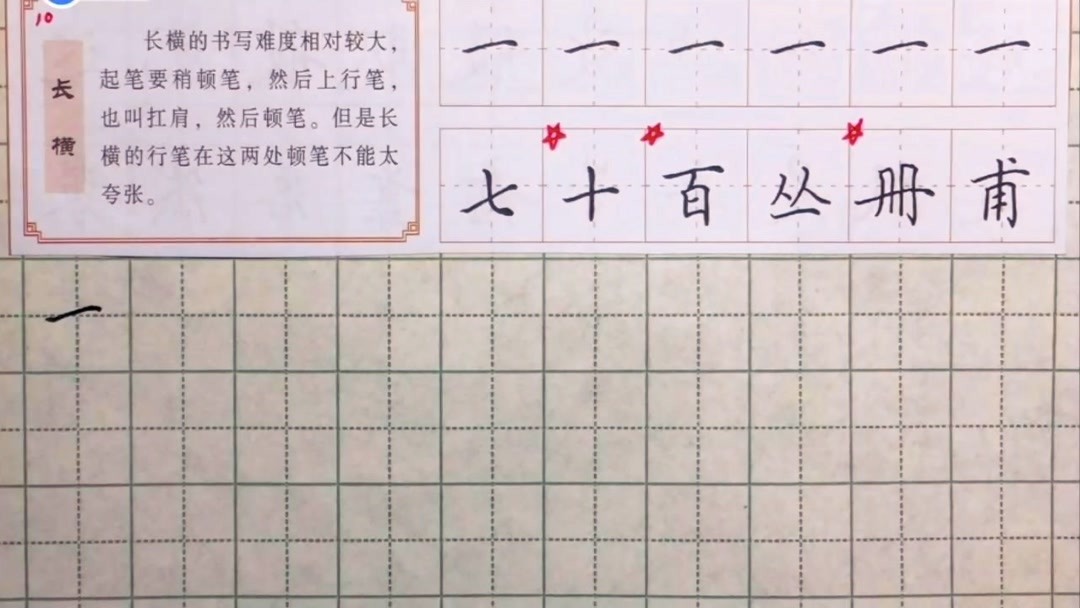 10
长横
长横的书写难度相对较大，
起笔要稍顿笔，然后上行笔，
也叫扛肩，然后顿笔。但是长
横的行笔在这两处顿笔不能太
夸张。
一 一 一 一 一 一
七 十 百 丛 册 甫
一